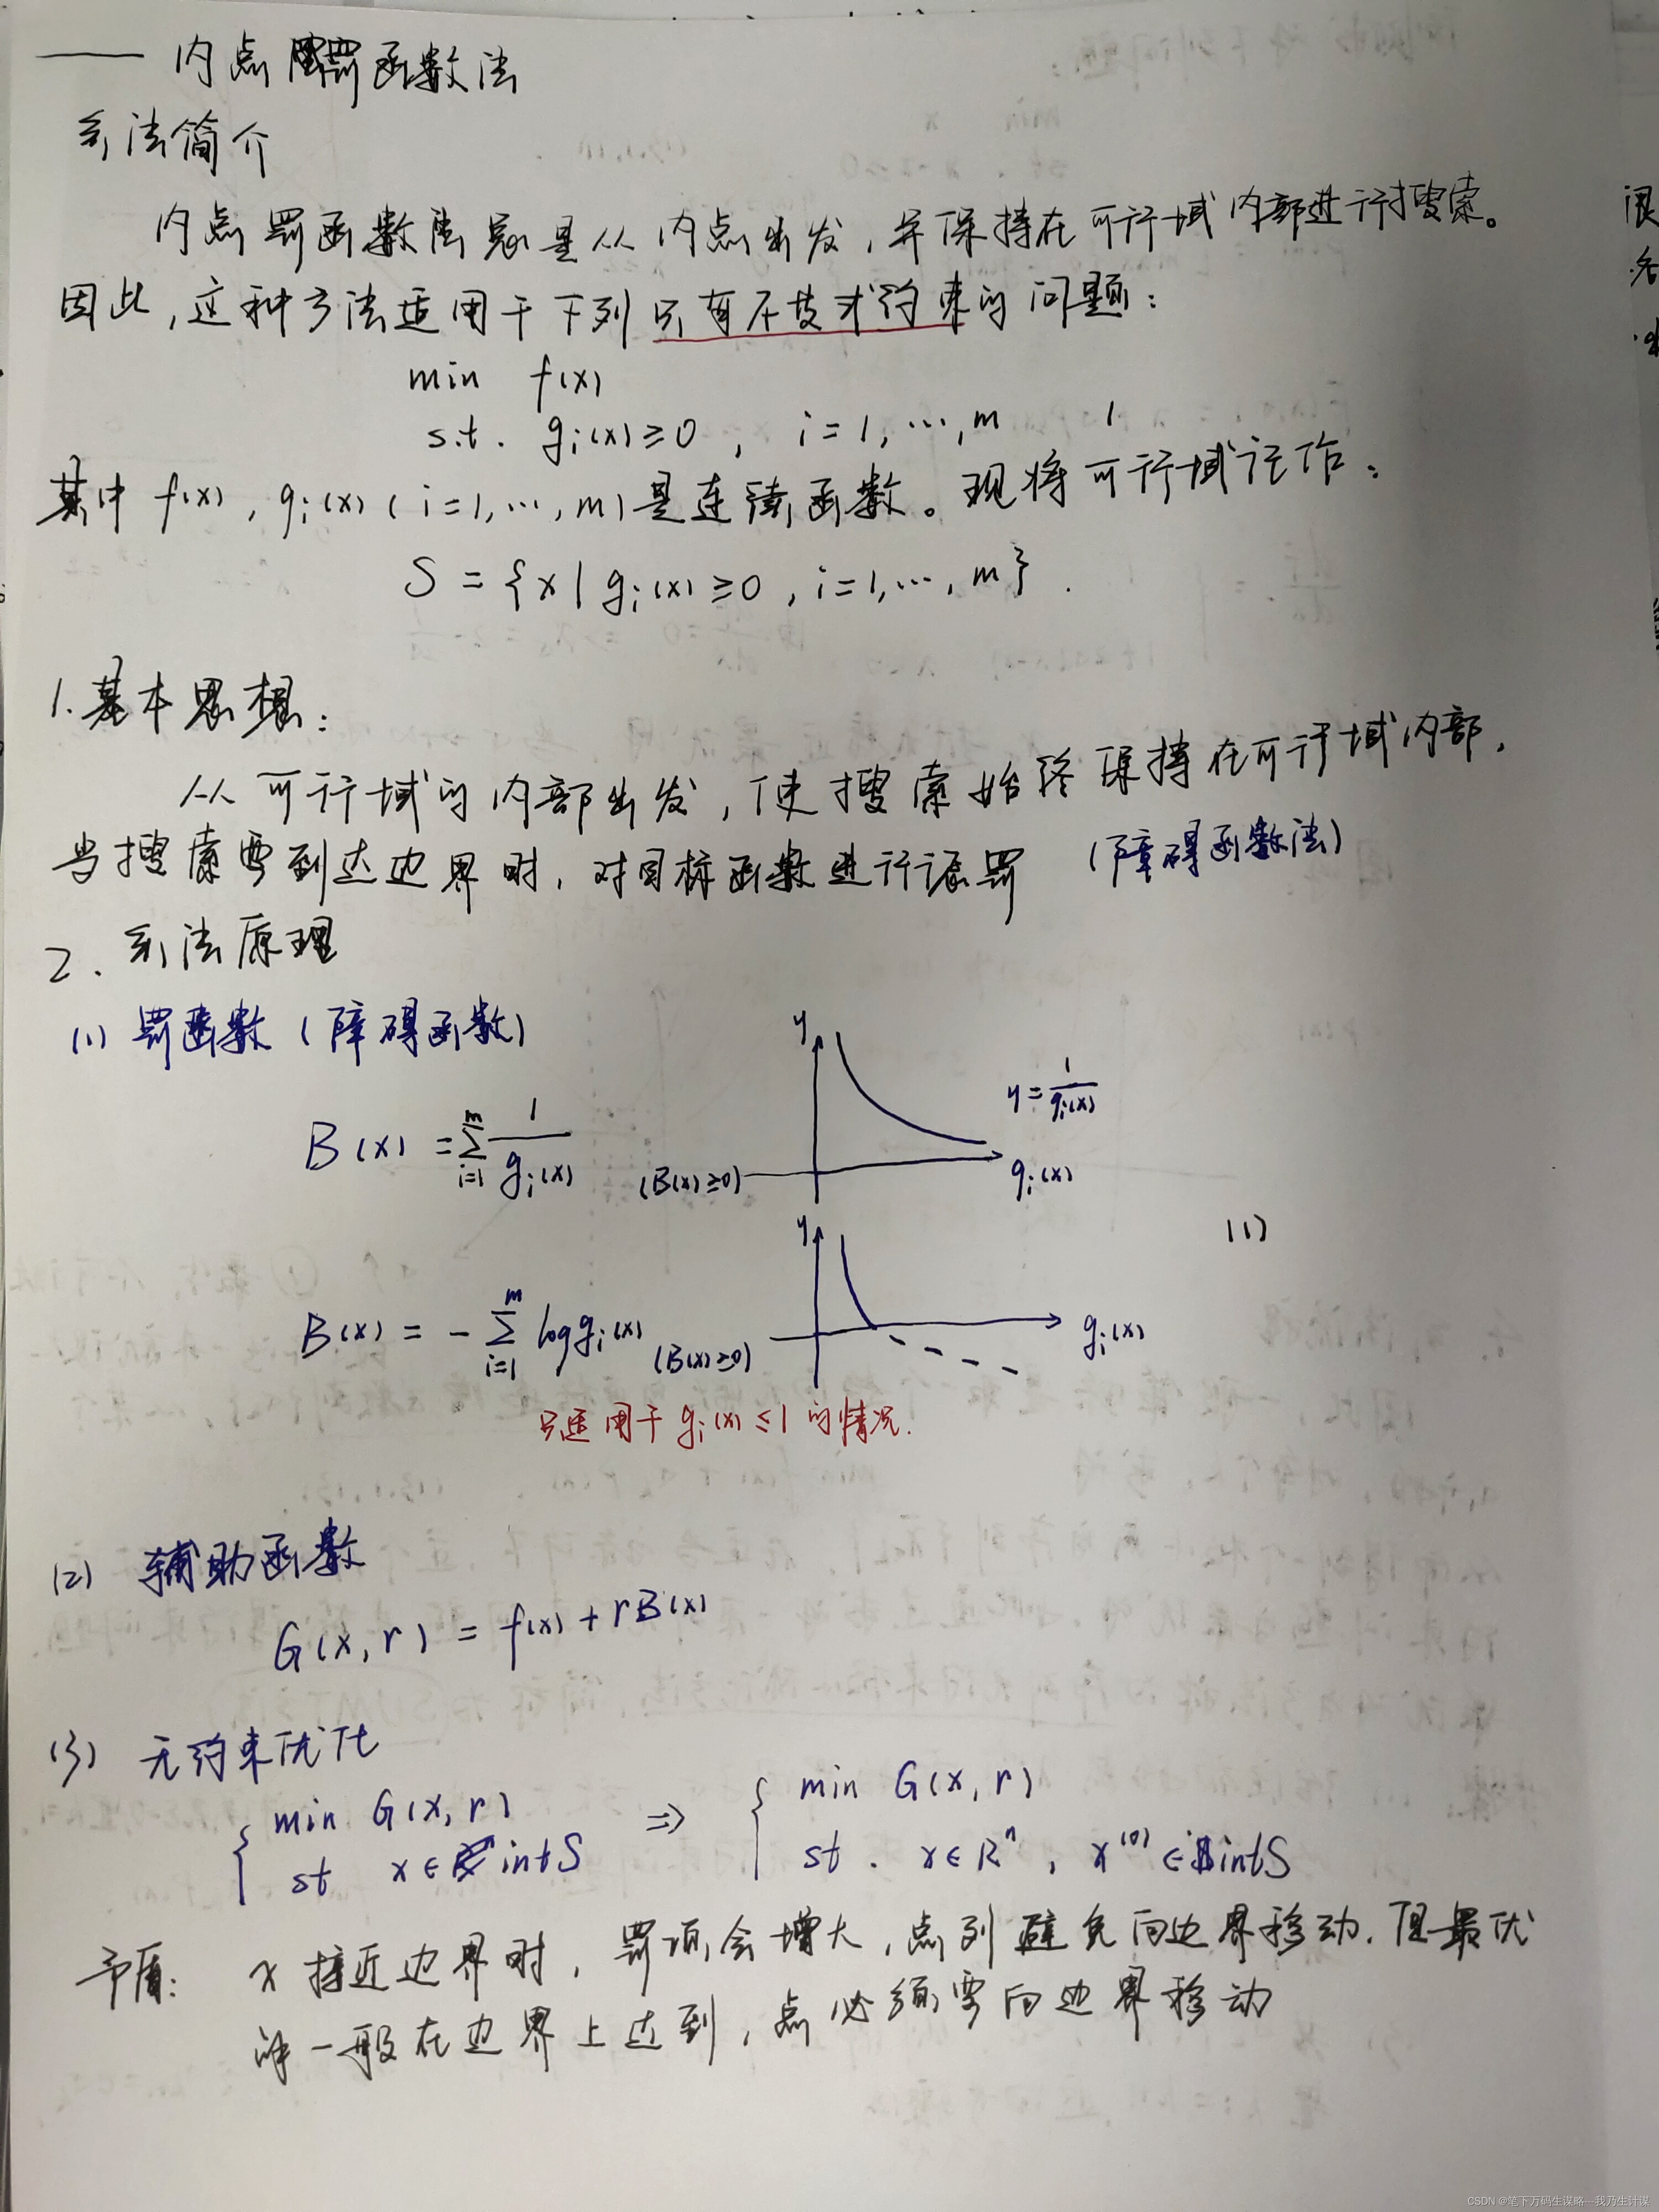 —— 内点罚函数法
算法简介
内点罚函数法总是从内点出发,并保持在可行域内部进行搜索。
因此,这种方法适用于下列只有不等式约束的问题:
min f(x)
s.t. gᵢ(x)≥0, i=1,…,m 1
其中 f(x), gᵢ(x) (i=1,…,m)是连续函数。现将可行域记作:
S = {x | gᵢ(x)≥0, i=1,…,m}.
1.基本思想:
从可行域的内部出发,使搜索始终保持在可行域内部,
当搜索要到达边界时,对目标函数进行惩罚 (障碍函数法)
2. 算法原理
(1) 罚函数(障碍函数)
y
y = 1/gᵢ(x)
B(x) = Σᵢ₌₁ᵐ 1/gᵢ(x) (B(x)≥0)
gᵢ(x)
y
(1)
B(x) = - Σᵢ₌₁ᵐ log gᵢ(x) (B(x)≥0)
gᵢ(x)
只适用于 gᵢ(x)≤1 的情况.
(2) 辅助函数
G(x, r) = f(x) + rB(x)
(3) 无约束优化
{ min G(x, r) ⇒ { min G(x, r)
st x∈ intS st. x∈Rⁿ, x⁽⁰⁾∈ intS
矛盾: x接近边界时,罚项会增大,点列避免向边界移动.但最优
解一般在边界上达到,点必须要向边界移动
CSDN @笔下万码生谋略---我乃生计谋